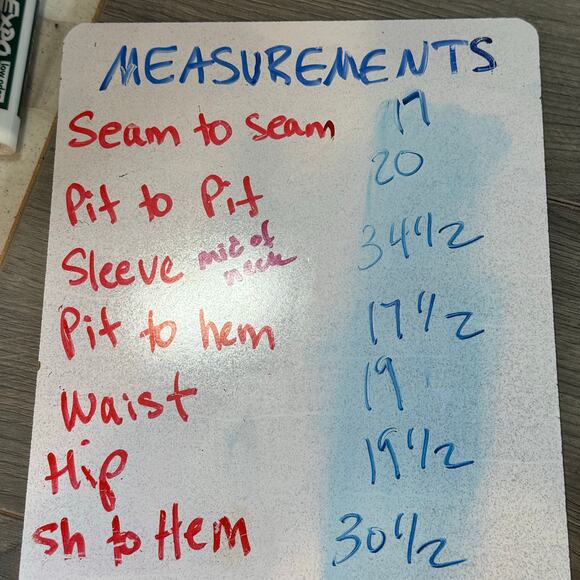 EXPO
low odor
MEASUREMENTS
Seam to seam 17
Pit to Pit 20
Sleeve mid of neck 34 1/2
Pit to hem 17 1/2
Waist 19
Hip 19 1/2
sh to Hem 30 1/2